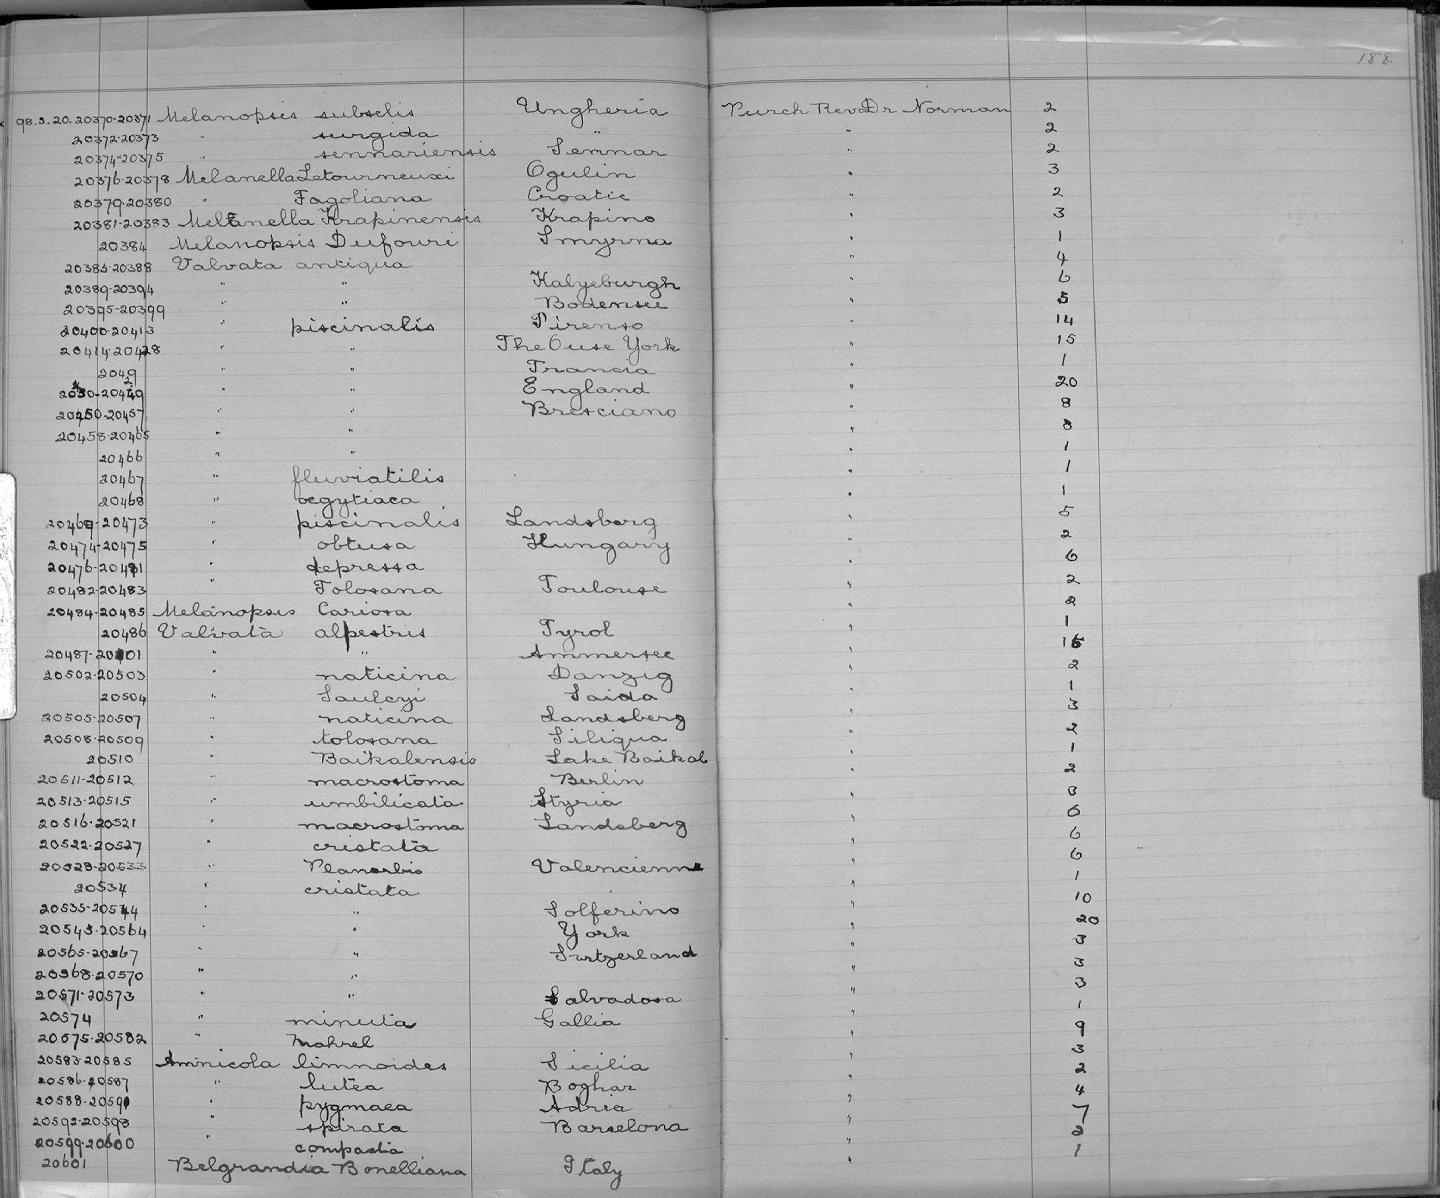 188.
98.5.20.20370-20371 Melanopsis subselis Ungheria Purch Rev Dr Norman 2
20372-20373 " surgida " " 2
20374-20375 " sennariensis Sennar " 2
20376-20378 Melanella Letourneuxi Ogulin " 3
20379-20380 " Fagoliana Croatie " 2
20381-20383 Melanella Krapinensis Krapino " 3
20384 Melanopsis Dufouri Smyrna " 1
20385-20388 Valvata antiqua " 4
20389-20394 " " Kalyeburgh " 6
20395-20399 " " Bodensee " 5
20400-20413 " piscinalis Pirenso " 14
20414-20428 " " The Ouse York " 15
2049 " " Francia " 1
" " England " 20
20450-20457 " " Bresciano " 8
20458-20465 " " " 8
20466 " " " 1
20467 " fluviatilis " 1
20468 " oegytiaca " 1
20469-20473 " piscinalis Landsberg " 5
20474-20475 " obtusa Hungary " 2
20476-20481 " depressa " 6
20482-20483 " Tolosana Toulouse " 2
20484-20485 Melanopsis Cariosa " 2
20486 Valvata alpestris Tyrol " 1
" " Ammersee " 15
20502-20503 " naticina Danzig " 2
20504 " Saulcyi Saida " 1
20505-20507 " naticina Landsberg " 3
20508-20509 " tolosana Siliqua " 2
20510 " Baikalensis Lake Baikal " 1
20511-20512 " macrostoma Berlin " 2
20513-20515 " umbilicata Styria " 3
20516-20521 " macrostoma Landsberg " 6
20522-20527 " cristata " 6
20528-20533 " Planorbis Valencienne " 6
20534 " cristata " 1
20535-20544 " " Solferino " 10
20545-20564 " " York " 20
20565-20567 " " Surtzerland " 3
20568-20570 " " " 3
20571-20573 " " Salvadosa " 3
20574 " minuta Gallia " 1
20575-20582 " Mohrel " 9
20583-20585 Amnicola limnoides Sicilia " 3
20586-20587 " lutea Boghar " 2
20588-20591 " pygmaea Adria " 4
20592-20598 " spirata Barselona " 7
20599-20600 " compacta " 2
20601 Belgrandia Bonelliana Italy " 1